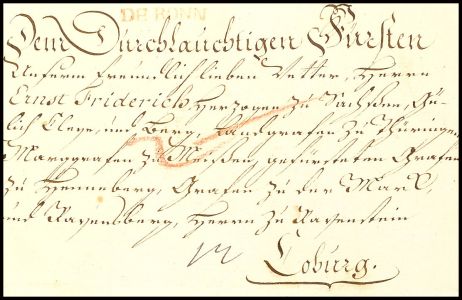 DE BONN
Dem Durchlauchtigen Fürsten
Unserm freundlich lieben Vetter, Herrn
Ernst Friderich, Herzogen zu Sachßen, Gü-
lich Cleve, und Berg, Landgrafen zu Thüringen,
Marggrafen zu Meißen, gefürsteten Grafen
zu Henneberg, Grafen zu der Marck,
und Ravensberg, Herrn zu Ravenstein
Coburg.